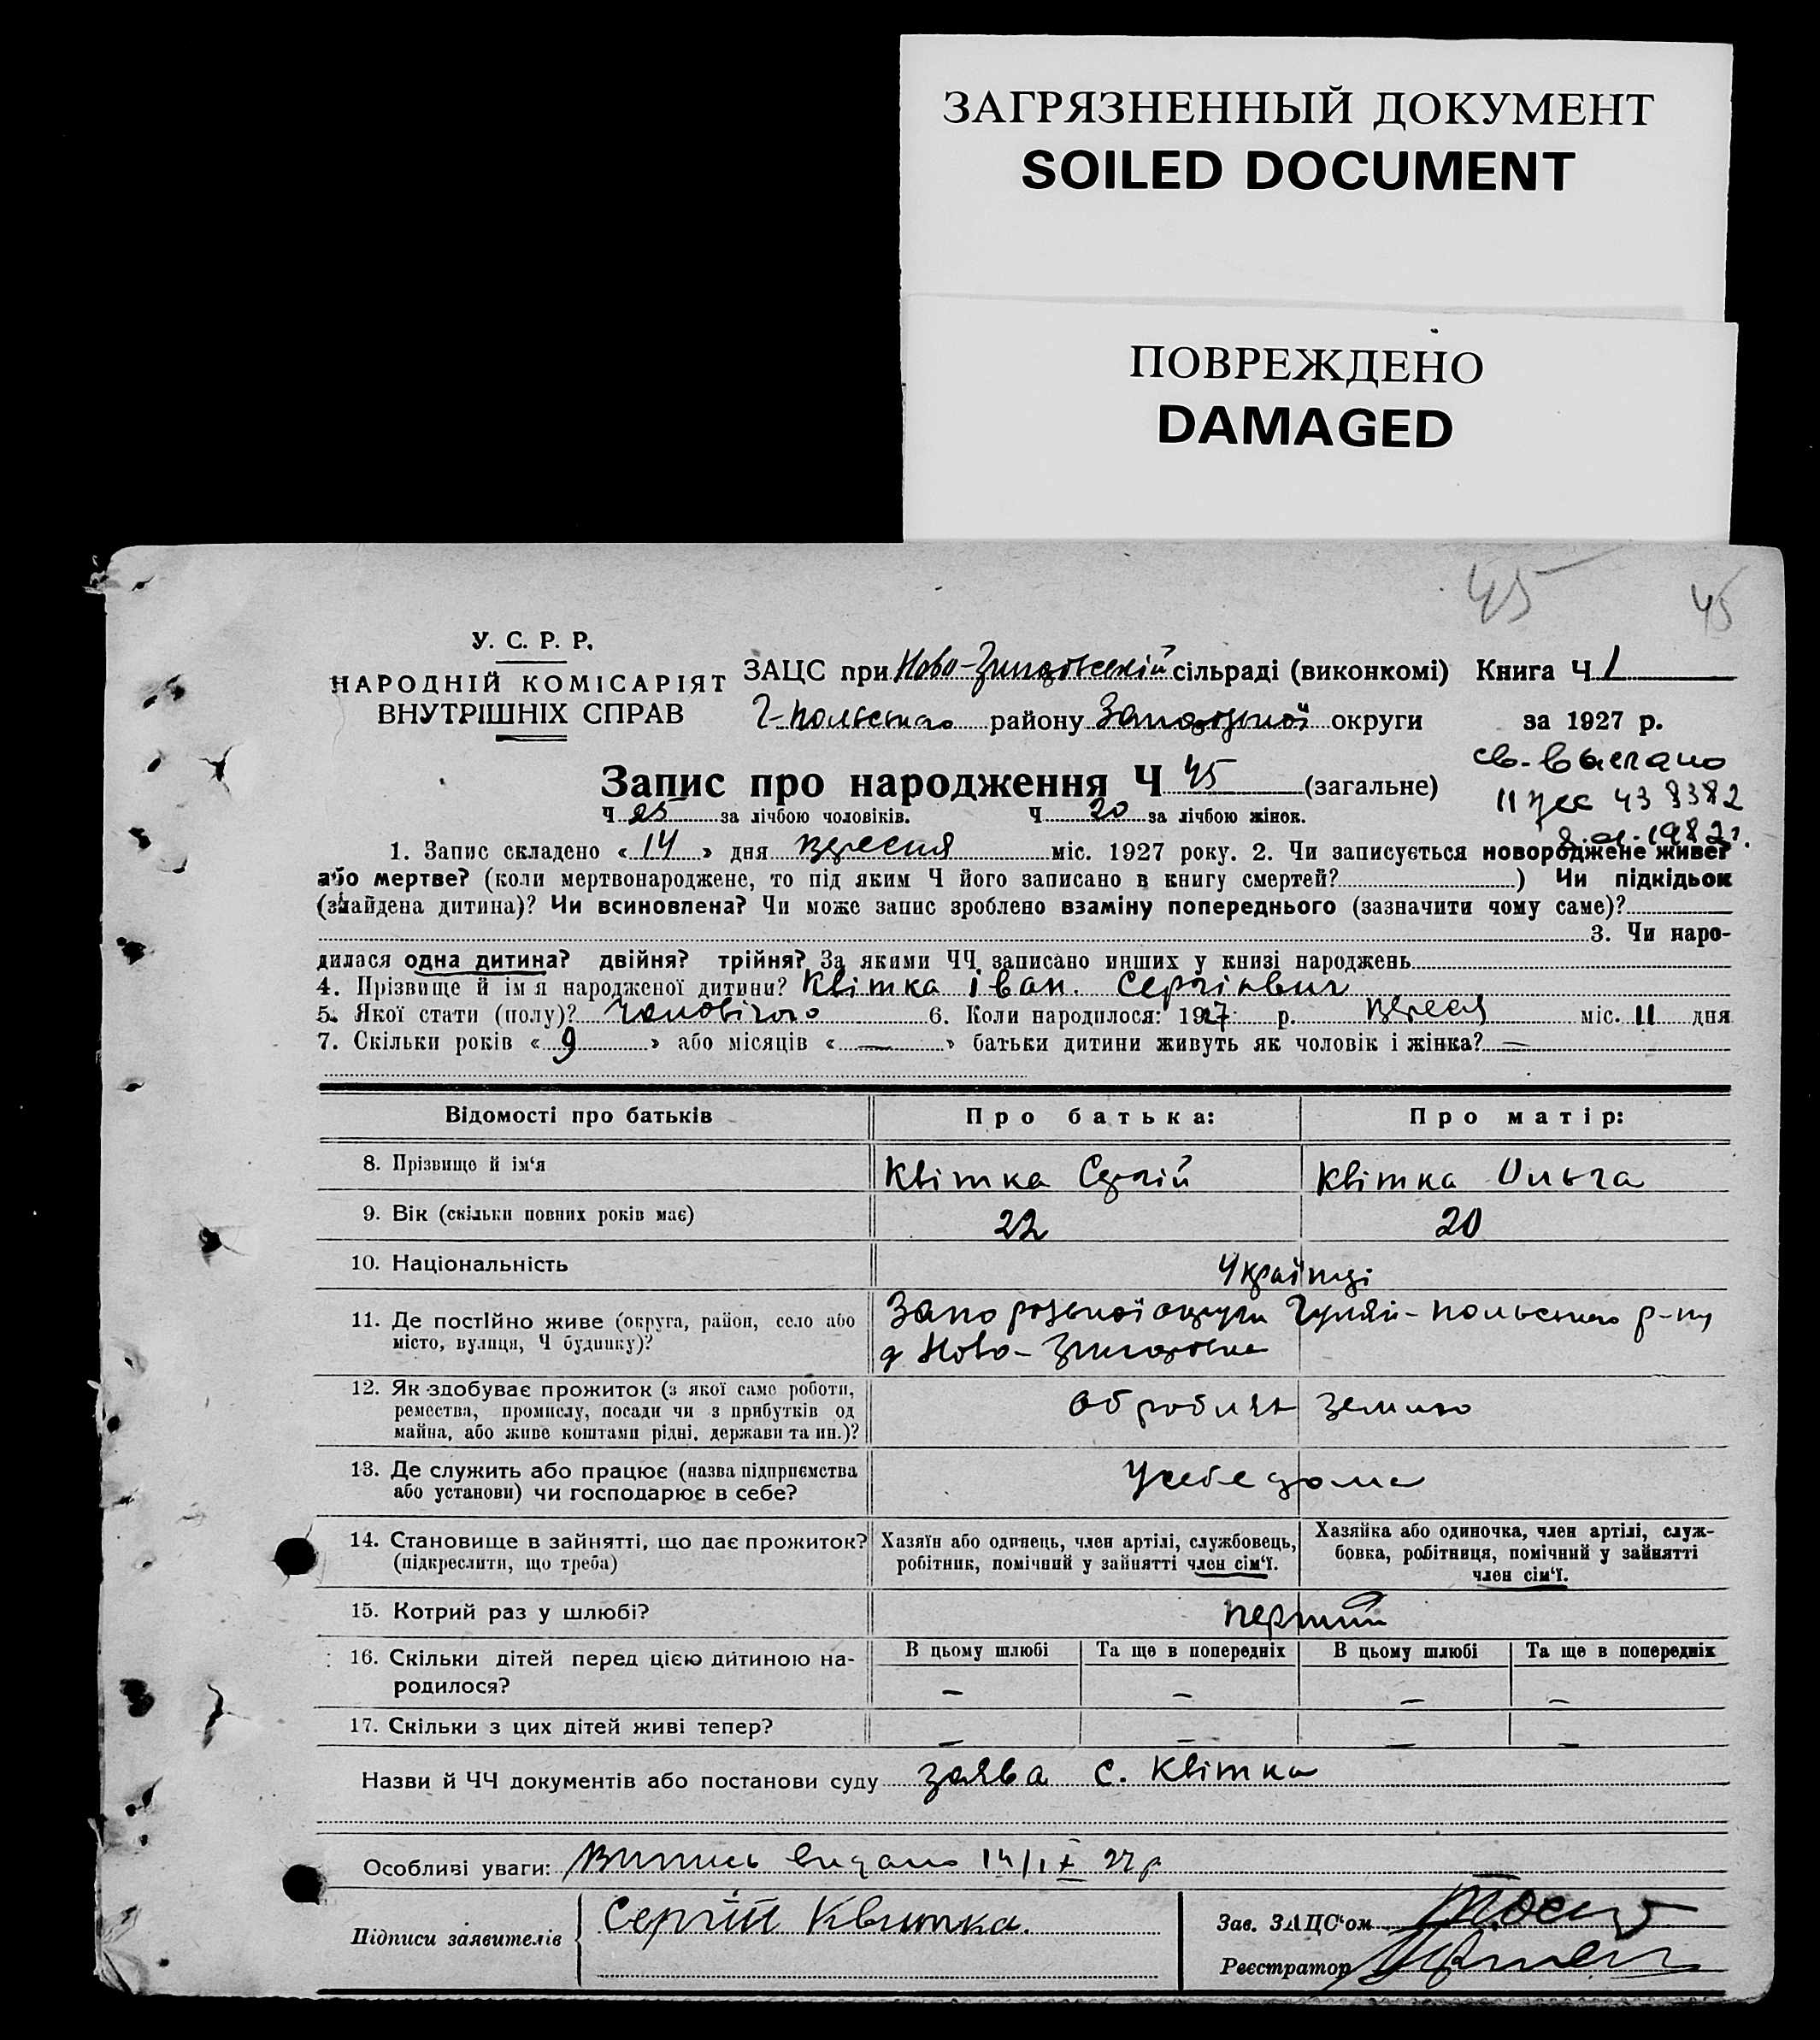 ЗАГРЯЗНЕННЫЙ ДОКУМЕНТ
SOILED DOCUMENT
ПОВРЕЖДЕНО
DAMAGED
45 45
У. С. Р. Р.
НАРОДНІЙ КОМІСАРІЯТ
ВНУТРІШНІХ СПРАВ
ЗАЦС при сільраді (виконкомі) Книга Ч 1
Г-Польського району Запорізької округи за 1927 р.
Запис про народження Ч 45 (загальне)
св. выслано
11 438382
1982 г.
Ч 25 за лічбою чоловіків. Ч 20 за лічбою жінок.
1. Запис складено « 14 » дня вересня міс. 1927 року. 2. Чи записується новороджене живе?
або мертве? (коли мертвонароджене, то під яким Ч його записано в книгу смертей? ) Чи підкідьок
(знайдена дитина)? Чи всиновлена? Чи може запис зроблено взаміну попереднього (зазначити чому саме)?
3. Чи наро-
дилася одна дитина? двійня? трійня? За якими ЧЧ записано инших у книзі народжень
4. Прізвище й ім'я народженої дитини? Квітка Іван. Сергіович
5. Якої стати (полу)? Чоловічого 6. Коли народилося: 1927 р. вересня міс. 11 дня
7. Скільки років « 9 » або місяців « — » батьки дитини живуть як чоловік і жінка? —
Відомості про батьків Про батька: Про матір:
8. Прізвище й ім'я Квітка Сергій Квітка Ольга
9. Вік (скільки повних років має) 22 20
10. Національність Українці
11. Де постійно живе (округа, район, село або Запорізької округи Гуляй-Польського р-ну
місто, вулиця, Ч будинку)?
12. Як здобуває прожиток (з якої саме роботи,
ремества, промислу, посади чи з прибутків од
майна, або живе коштами рідні, держави та ин.)? землю
13. Де служить або працює (назва підприємства
або установи) чи господарює в себе? У себе дома
14. Становище в зайнятті, що дає прожиток?
(підкреслити, що треба)
Хазяїн або одинець, член артілі, службовець,
робітник, помічний у зайнятті член сім'ї.
Хазяйка або одиночка, член артілі, служ-
бовка, робітниця, помічний у зайнятті
член сім'ї.
15. Котрий раз у шлюбі? перший
16. Скільки дітей перед цією дитиною на-
родилося?
В цьому шлюбі Та ще в попередніх В цьому шлюбі Та ще в попередніх
— — — —
17. Скільки з цих дітей живі тепер? — — — —
Назви й ЧЧ документів або постанови суду заява С. Квітка
Особливі уваги: Випись видано 14/IX 27 р
Підписи заявителів Сергій Квитка.
Зав. ЗАЦС'ом
Реєстратор